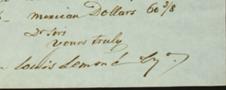 mexican Dollars 60 3/8
Dr Sirs
yours truly
Louis Lemoné